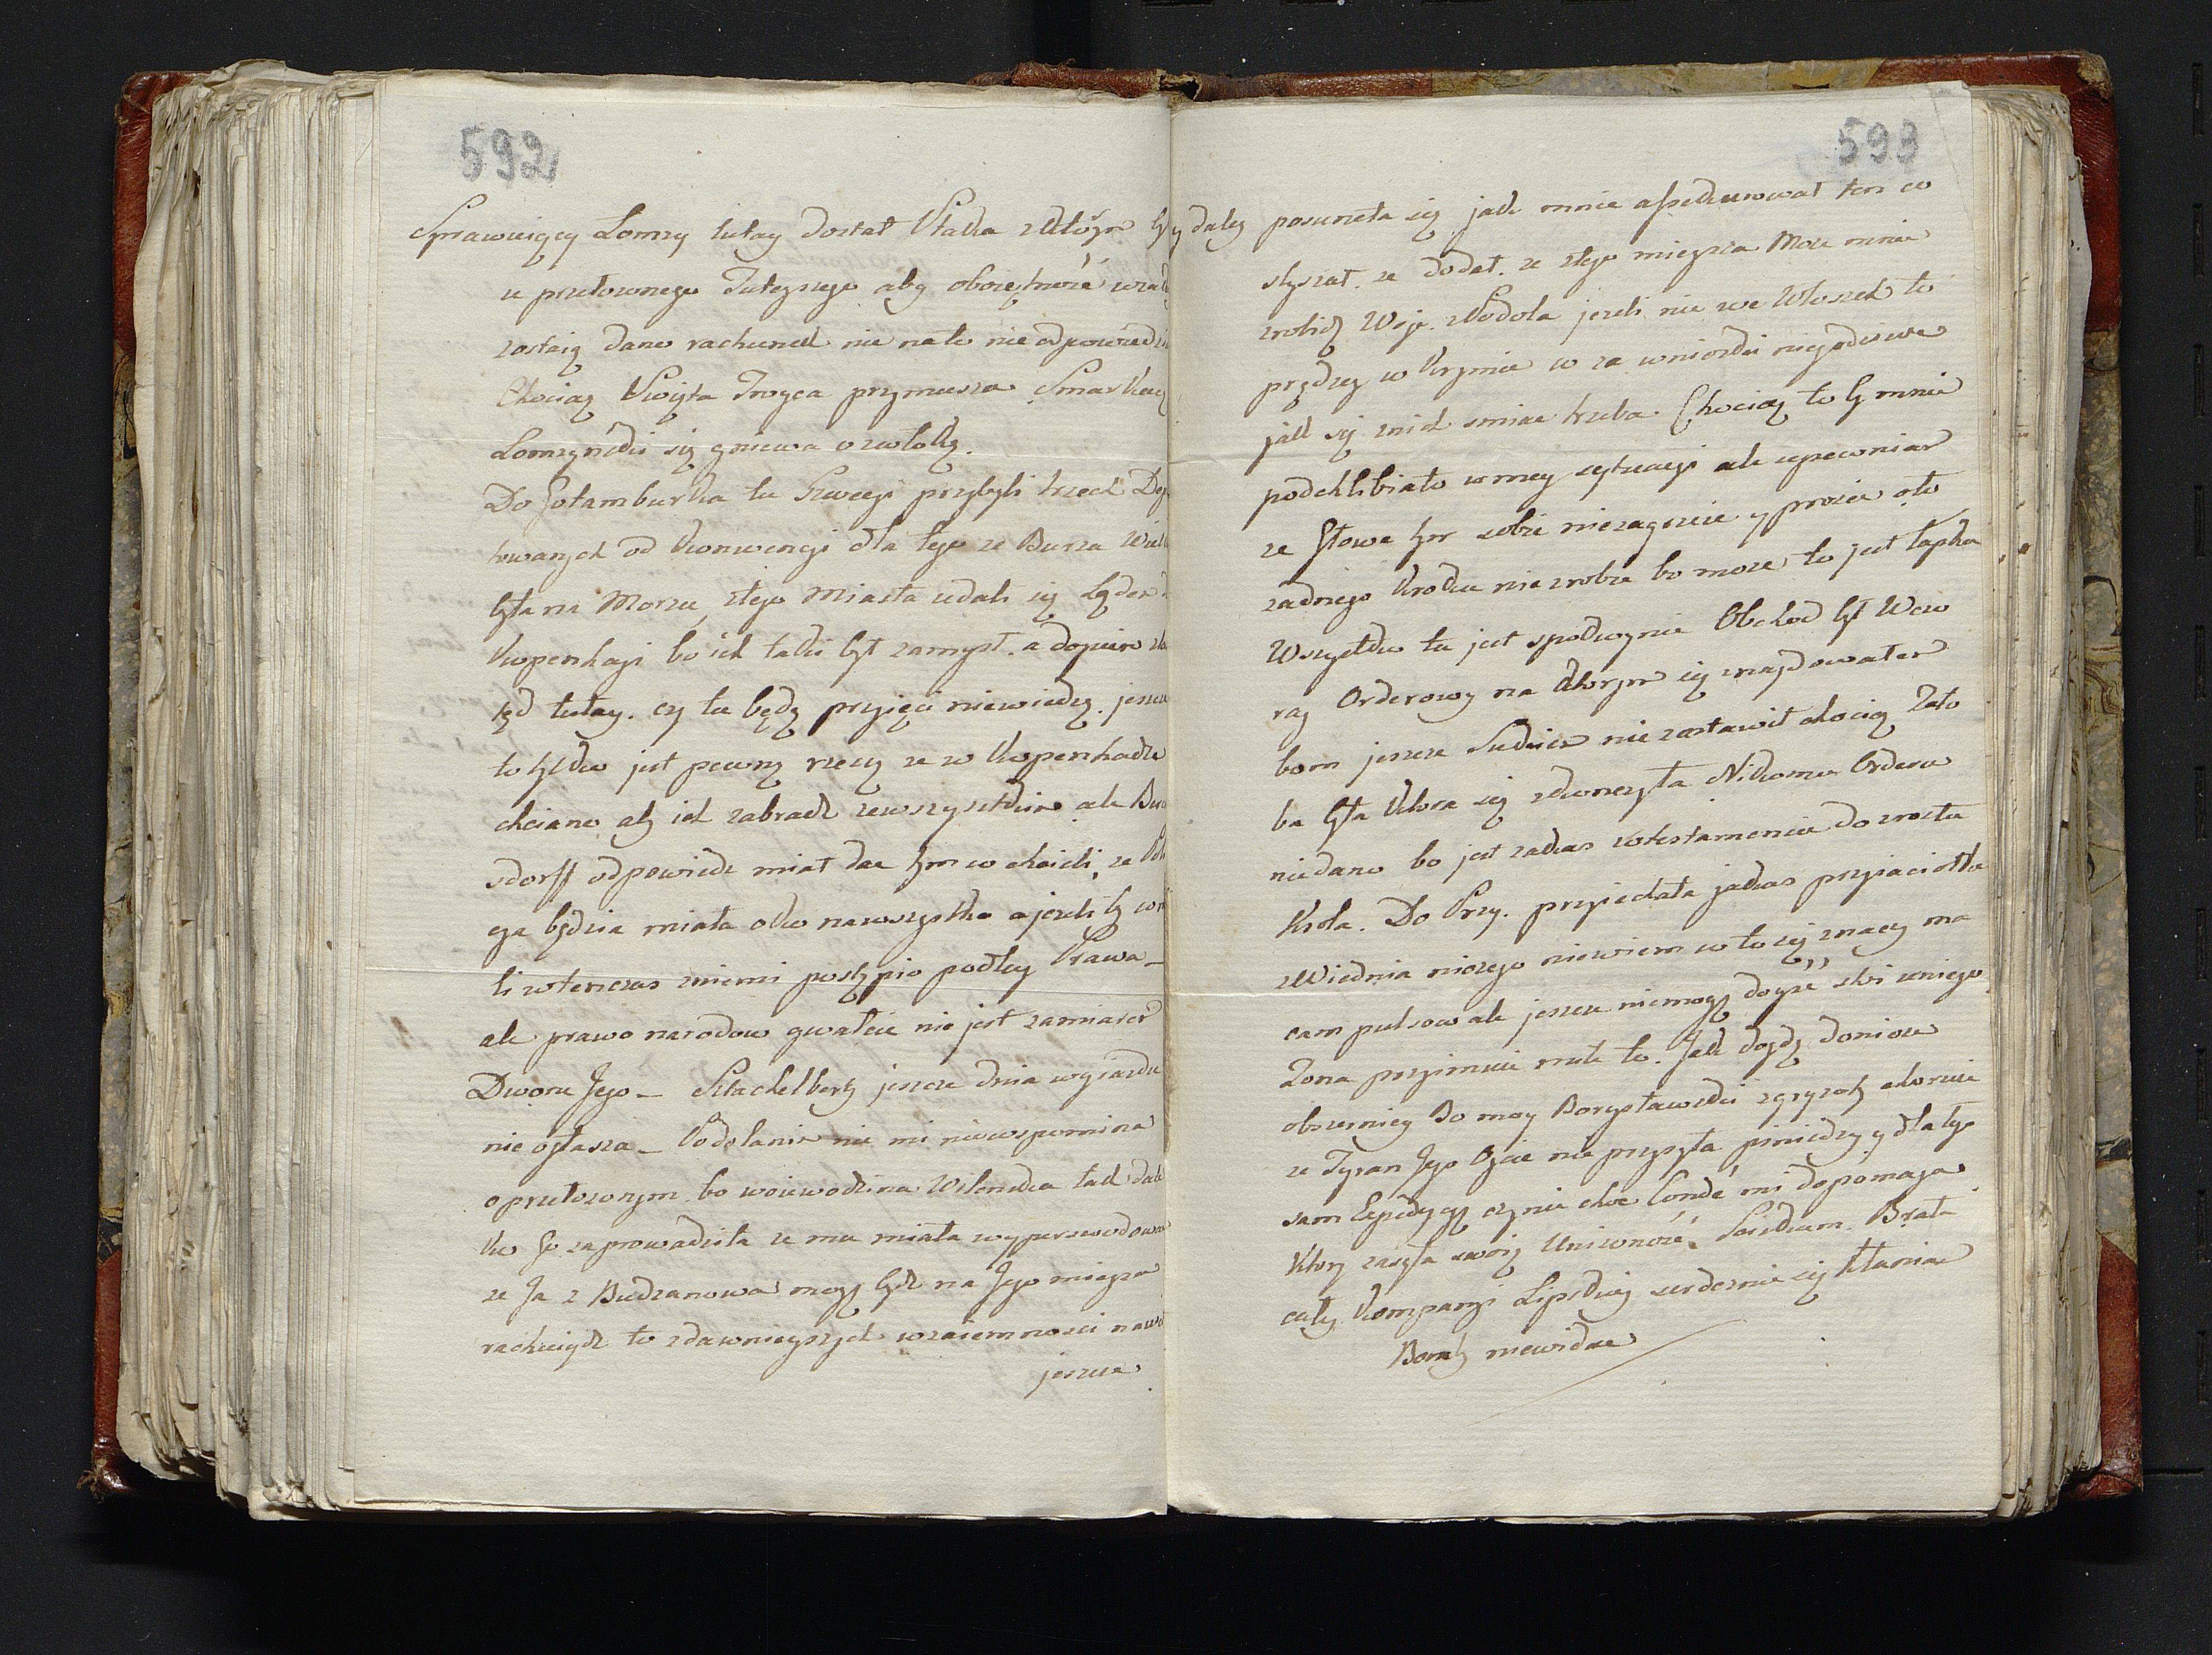 592
Sprawuiący Lomzy tutay dostał Ptaka z Którym by
u przełozonego Tuteyszego aby oboiętność
zostaią dano rachunek nie na to nie odpowiedzi
Chociaz Woyta Troyca przymusza
Lomzyński się gniewa o zwłokę.
Do Gotamburka tu Szwecyi przybyli trzech Dep
towanych od Konwencyi dla tego ze Burza Wielk
była na Morzu, ztego Miasta udali się Lądem
Kopenhagi bo ich taki był zamysł. a dopiero
tąd tutay. czy tu będą przyięci niewiedzą. jeszcze
to tylko jest pewną rzeczą ze w Kopenhadze
chciano aby ich zabrać ze wszystkim ale Ber
sdorff odpowiedz miał dac tym co chcieli, ze Pol
cya będzie miała oko nawszystko a jezeli by co
li wtenczas zniemi postąpio podług Prawa_
ale prawo narodow gwałcic nie jest zamiarem
Dworu Jego _ Sztachelberg jeszcze dnia wyiazdu
nie ogłasza _ Podolanin nic mi niewspomina
o przełozonym. bo woiewodzina Wilenska tak dale
ko Jo zaprowadziła ze mu miała wyperswodowac
ze Ja z Budzanowa mogę bydz na Jego mieysce
rachuiąc to zdawnieyszych wzaiemnosci nawet
jeszcze
593
y daley posuneła się jak mnie assekurował ten co
słyszał. ze dodał. ze ztego mieysca Moze mnie
zrobić Woje. z Podola jezeli nie we Włoszech to
prędzey w Krymie co za wnioski niegodziwe
jak się znich smiac trzeba. Chociaz to by mnie
podchlibiało w mey sytuacyi ale upewniam
ze Głowe tym sobie niezagrzeie y prosze oto
zadnego Kroku nie zrobie bo moze to jest łapka
Wszystko tu jest spokoynie Obchod był Wczo
ray Orderowy na Ktorym się znajdowałem
bom jeszcze Sukien nie zostawił chociaz Zało
ba była Ktora się skonczyła Nikomu Orderu
niedano bo jest zakas w testamencie do zrostu
Krola. Do Przy. przyiechała jakas przyiaciołka
z Wiednia niczego niewiem co to się znaczy ma
cam pulsow ale jeszcze niemogę doyść
Zona przyimuie mile to. Jak doydę doniose
obszerniey Bo moy Borysławski zgryzoty choruie
ze Tyran Jego Oycie nie przysyła pieniedzy y dla tego
sam Expedyuję czynie choc Condé mi dopomaga
Ktory zasyła swoią Unizonosć. Sciskam Brata
całey Kompanyi Lipskiey serdecznie się kłaniam
Bomby niewidac